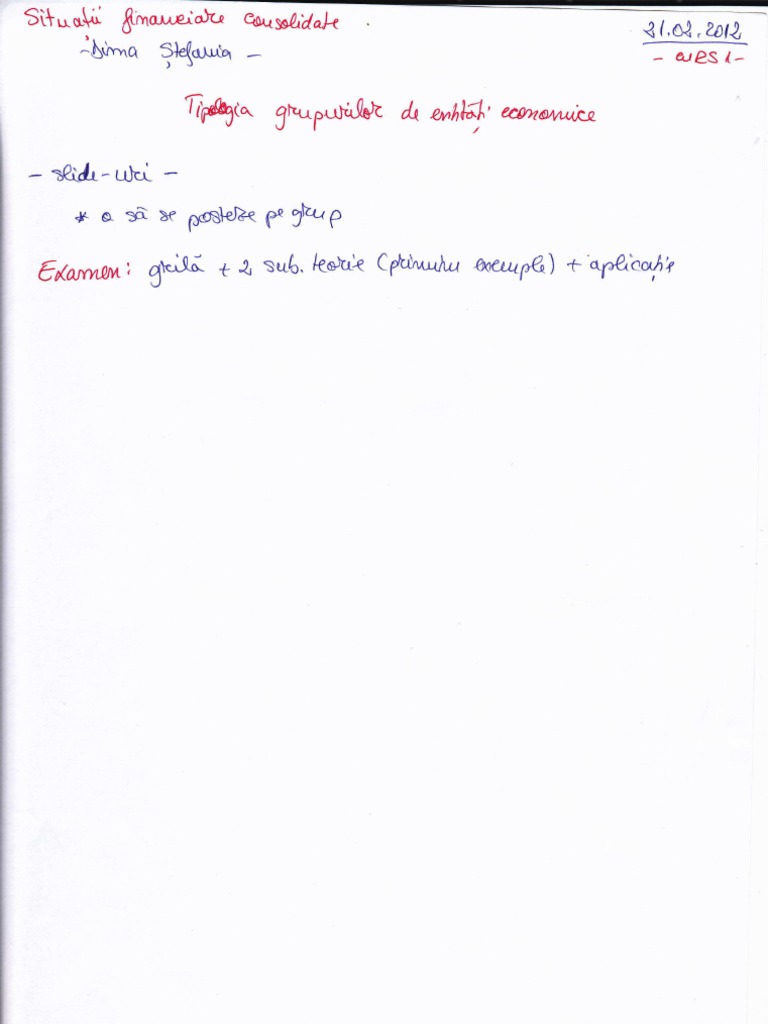 Situații financiare consolidate
21.02.2012
-Dima Ștefania -
- CURS 1 -
Tipologia grupurilor de entități economice
- slide-uri -
* o să se posteze pe grup
Examen: grilă + 2 sub. teorie (primim exemple) + aplicație